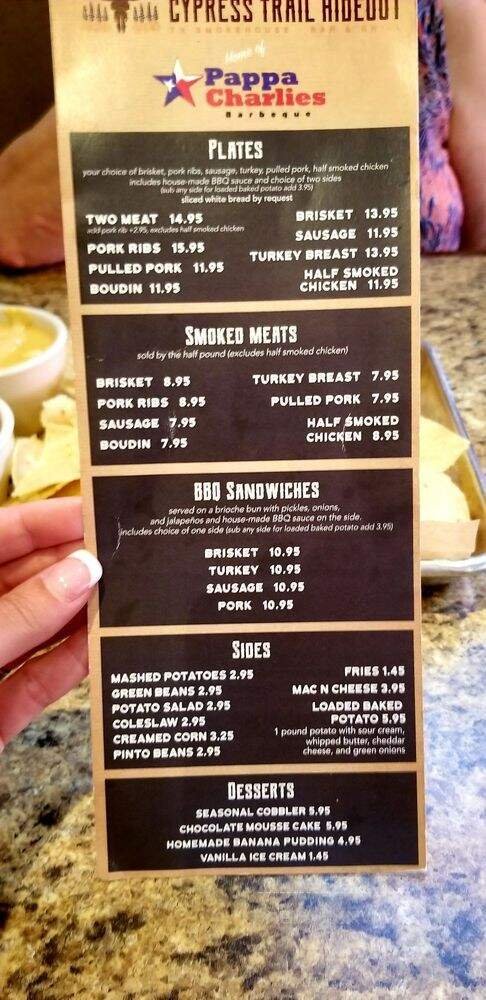 CYPRESS TRAIL HIDEOUT
TX SMOKEHOUSE BAR &
Home of
Pappa
Charlies
Barbeque
PLATES
your choice of brisket, pork ribs, sausage, turkey, pulled pork, half smoked chicken
includes house-made BBQ sauce and choice of two sides
(sub any side for loaded baked potato add 3.95)
sliced white bread by request
TWO MEAT 14.95
add pork rib +2.95, excludes half smoked chicken
PORK RIBS 15.95
PULLED PORK 11.95
BOUDIN 11.95
BRISKET 13.95
SAUSAGE 11.95
TURKEY BREAST 13.95
HALF SMOKED
CHICKEN 11.95
SMOKED MEATS
sold by the half pound (excludes half smoked chicken)
BRISKET 8.95
PORK RIBS 8.95
SAUSAGE 7.95
BOUDIN 7.95
TURKEY BREAST 7.95
PULLED PORK 7.95
HALF SMOKED
CHICKEN 8.95
BBQ SANDWICHES
served on a brioche bun with pickles, onions,
and jalapeños and house-made BBQ sauce on the side.
includes choice of one side (sub any side for loaded baked potato add 3.95)
BRISKET 10.95
TURKEY 10.95
SAUSAGE 10.95
PORK 10.95
SIDES
MASHED POTATOES 2.95
GREEN BEANS 2.95
POTATO SALAD 2.95
COLESLAW 2.95
CREAMED CORN 3.25
PINTO BEANS 2.95
FRIES 1.45
MAC N CHEESE 3.95
LOADED BAKED
POTATO 5.95
1 pound potato with sour cream,
whipped butter, cheddar
cheese, and green onions
DESSERTS
SEASONAL COBBLER 5.95
CHOCOLATE MOUSSE CAKE 5.95
HOMEMADE BANANA PUDDING 4.95
VANILLA ICE CREAM 1.45